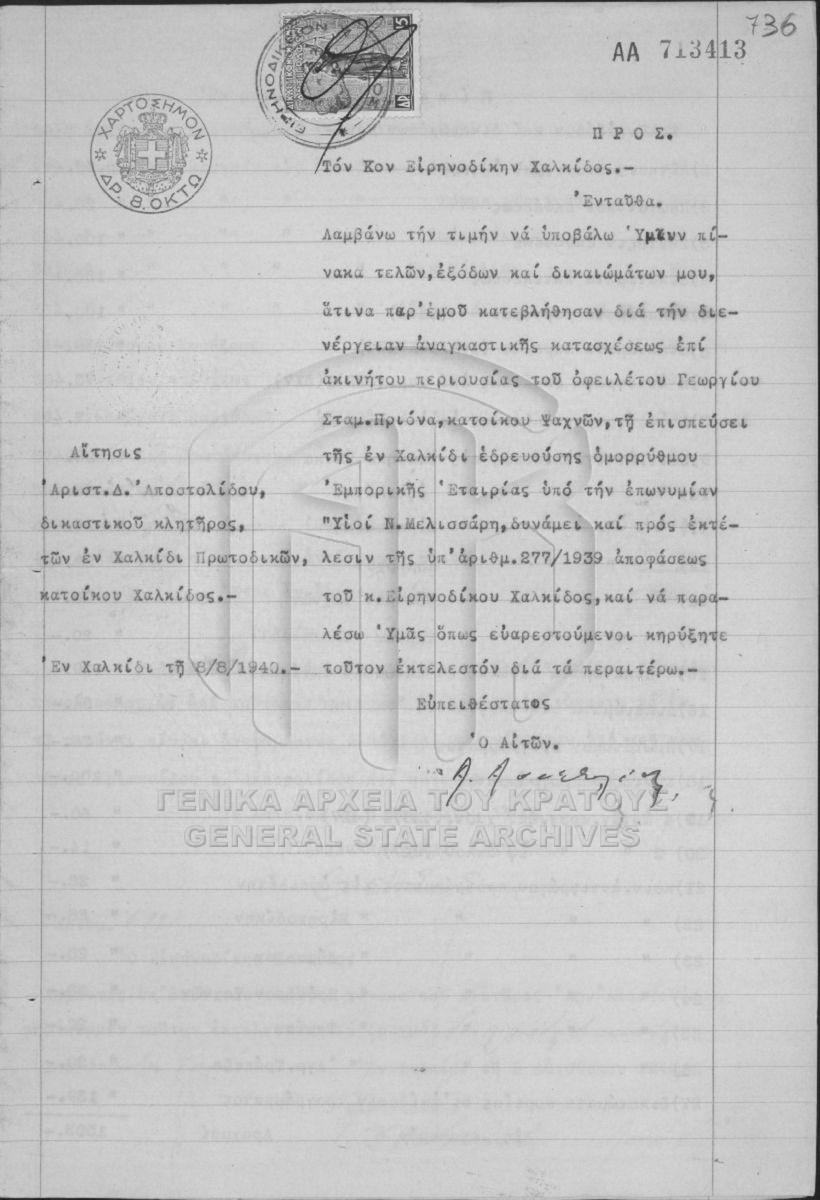 736
ΑΑ 713413
ΕΙΡΗΝΟΔΙΚΕΙΟΝ
ΧΑΡΤΟΣΗΜΟΝ
ΔΡ. 8. ΟΚΤΩ
Π Ρ Ο Σ.
Τόν Κον Εἰρηνοδίκην Χαλκίδος.-
Ἐνταῦθα.
Λαμβάνω τήν τιμήν νά ὑποβάλω Ὑμῖν πί-
νακα τελῶν,ἐξόδων καί δικαιώμάτων μου,
ἅτινα παρ'ἐμοῦ κατεβλήθησαν διά τήν διε-
νέργειαν ἀναγκαστικῆς κατασχέσεως ἐπί
ἀκινήτου περιουσίας τοῦ ὀφειλέτου Γεωργίου
Σταμ.Πριόνα,κατοίκου Ψαχνῶν,τῇ ἐπισπεύσει
τῆς ἐν Χαλκίδι ἑδρευούσης ὁμορρύθμου
Ἐμπορικῆς Ἑταιρίας ὑπό τήν ἐπωνυμίαν
"Υἱοί Ν.Μελισσάρη,δυνάμει καί πρός ἐκτέ-
λεσιν τῆς ὑπ'ἀριθμ.277/1939 ἀποφάσεως
τοῦ κ.Εἰρηνοδίκου Χαλκίδος,καί νά παρα-
λέσω Ὑμᾶς ὅπως εὐαρεστούμενοι κηρύξητε
τοῦτον ἐκτελεστόν διά τά περαιτέρω.-
Εὐπειθέστατος
Ὁ Αἰτῶν.
Αἴτησις
Ἀριστ.Δ.Ἀποστολίδου,
δικαστικοῦ κλητῆρος,
τῶν ἐν Χαλκίδι Πρωτοδικῶν,
κατοίκου Χαλκίδος.-
Ἐν Χαλκίδι τῇ 8/8/1940.-
ΓΕΝΙΚΑ ΑΡΧΕΙΑ ΤΟΥ ΚΡΑΤΟΥΣ
GENERAL STATE ARCHIVES